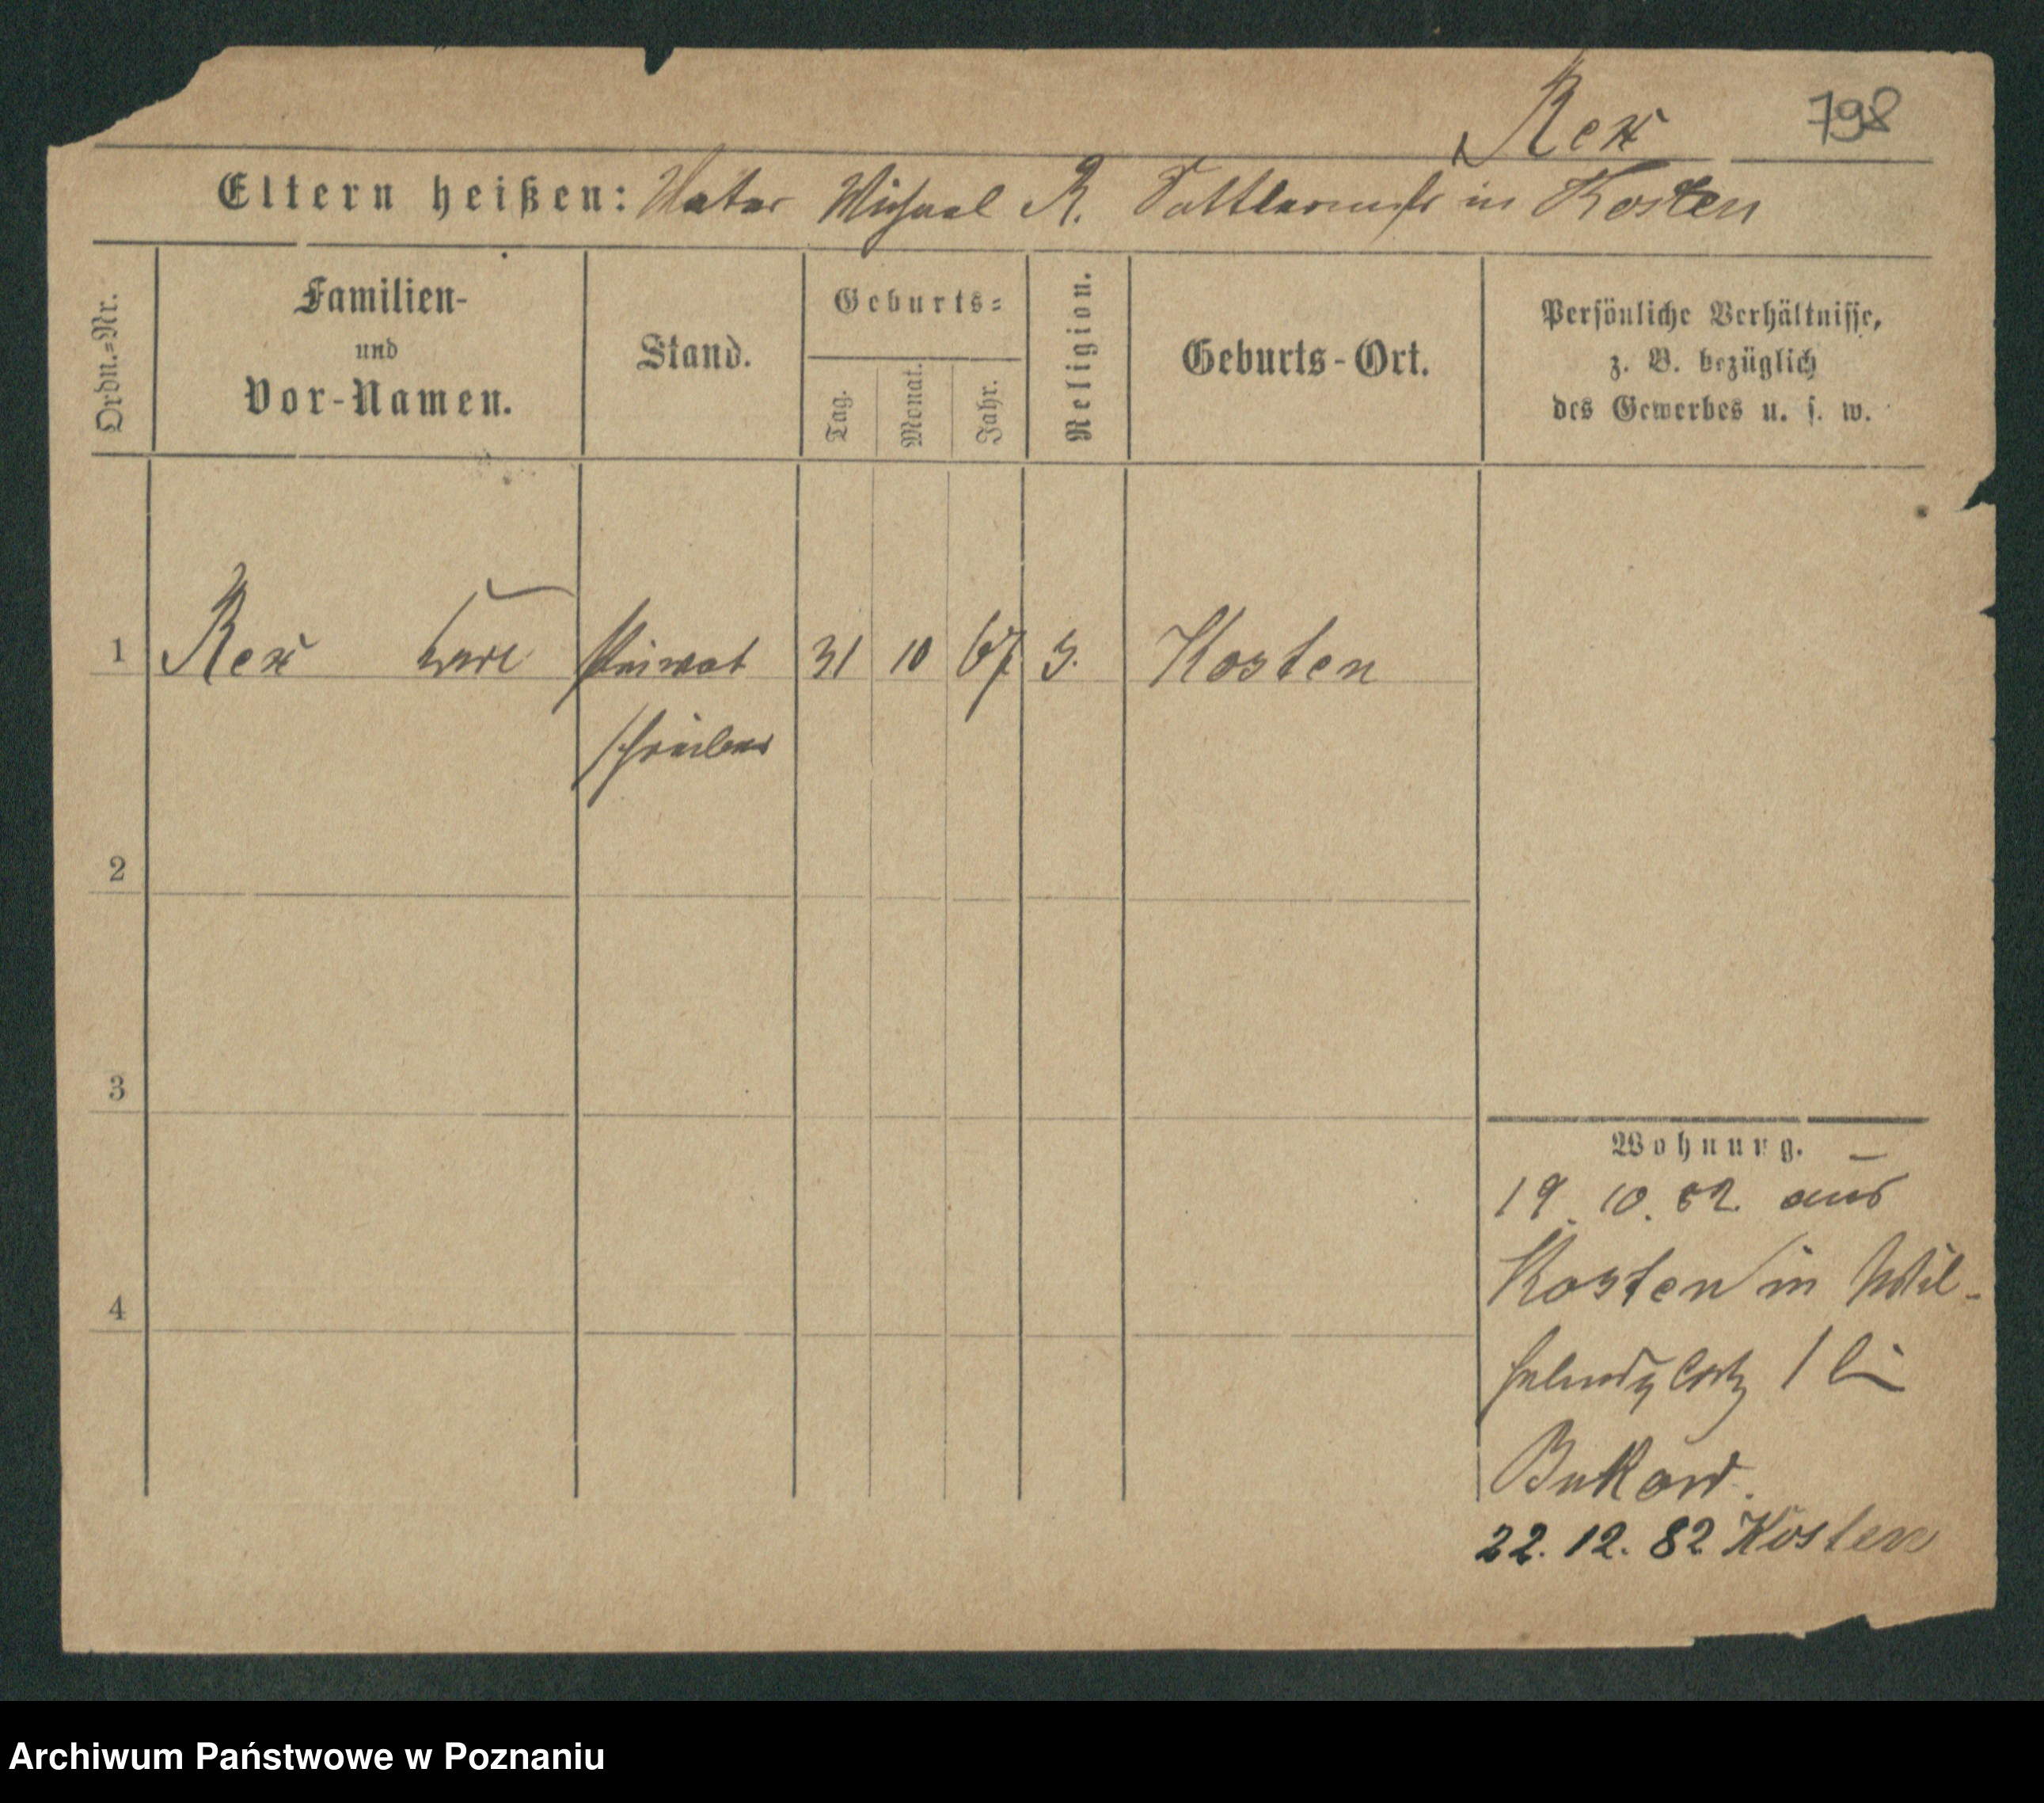 Rex 798
Eltern heißen: Vater Michael R. Sattlermstr in Kosten
Ordn.=Nr.
Familien-
und
Vor-Namen.
Stand.
Geburts=
Tag.
Monat.
Jahr.
Religion.
Geburts-Ort.
Persönliche Verhältnisse,
z. B. bezüglich
des Gewerbes u. s. w.
1 Rex Carl Privat 31 10 67 Kosten
schreiber
2
3
4
Wohnung.
19. 10. 82. aus
Kosten in Wil-
helmsplatz 1 bei
Bukow.
22. 12. 82 Kosten
Archiwum Państwowe w Poznaniu